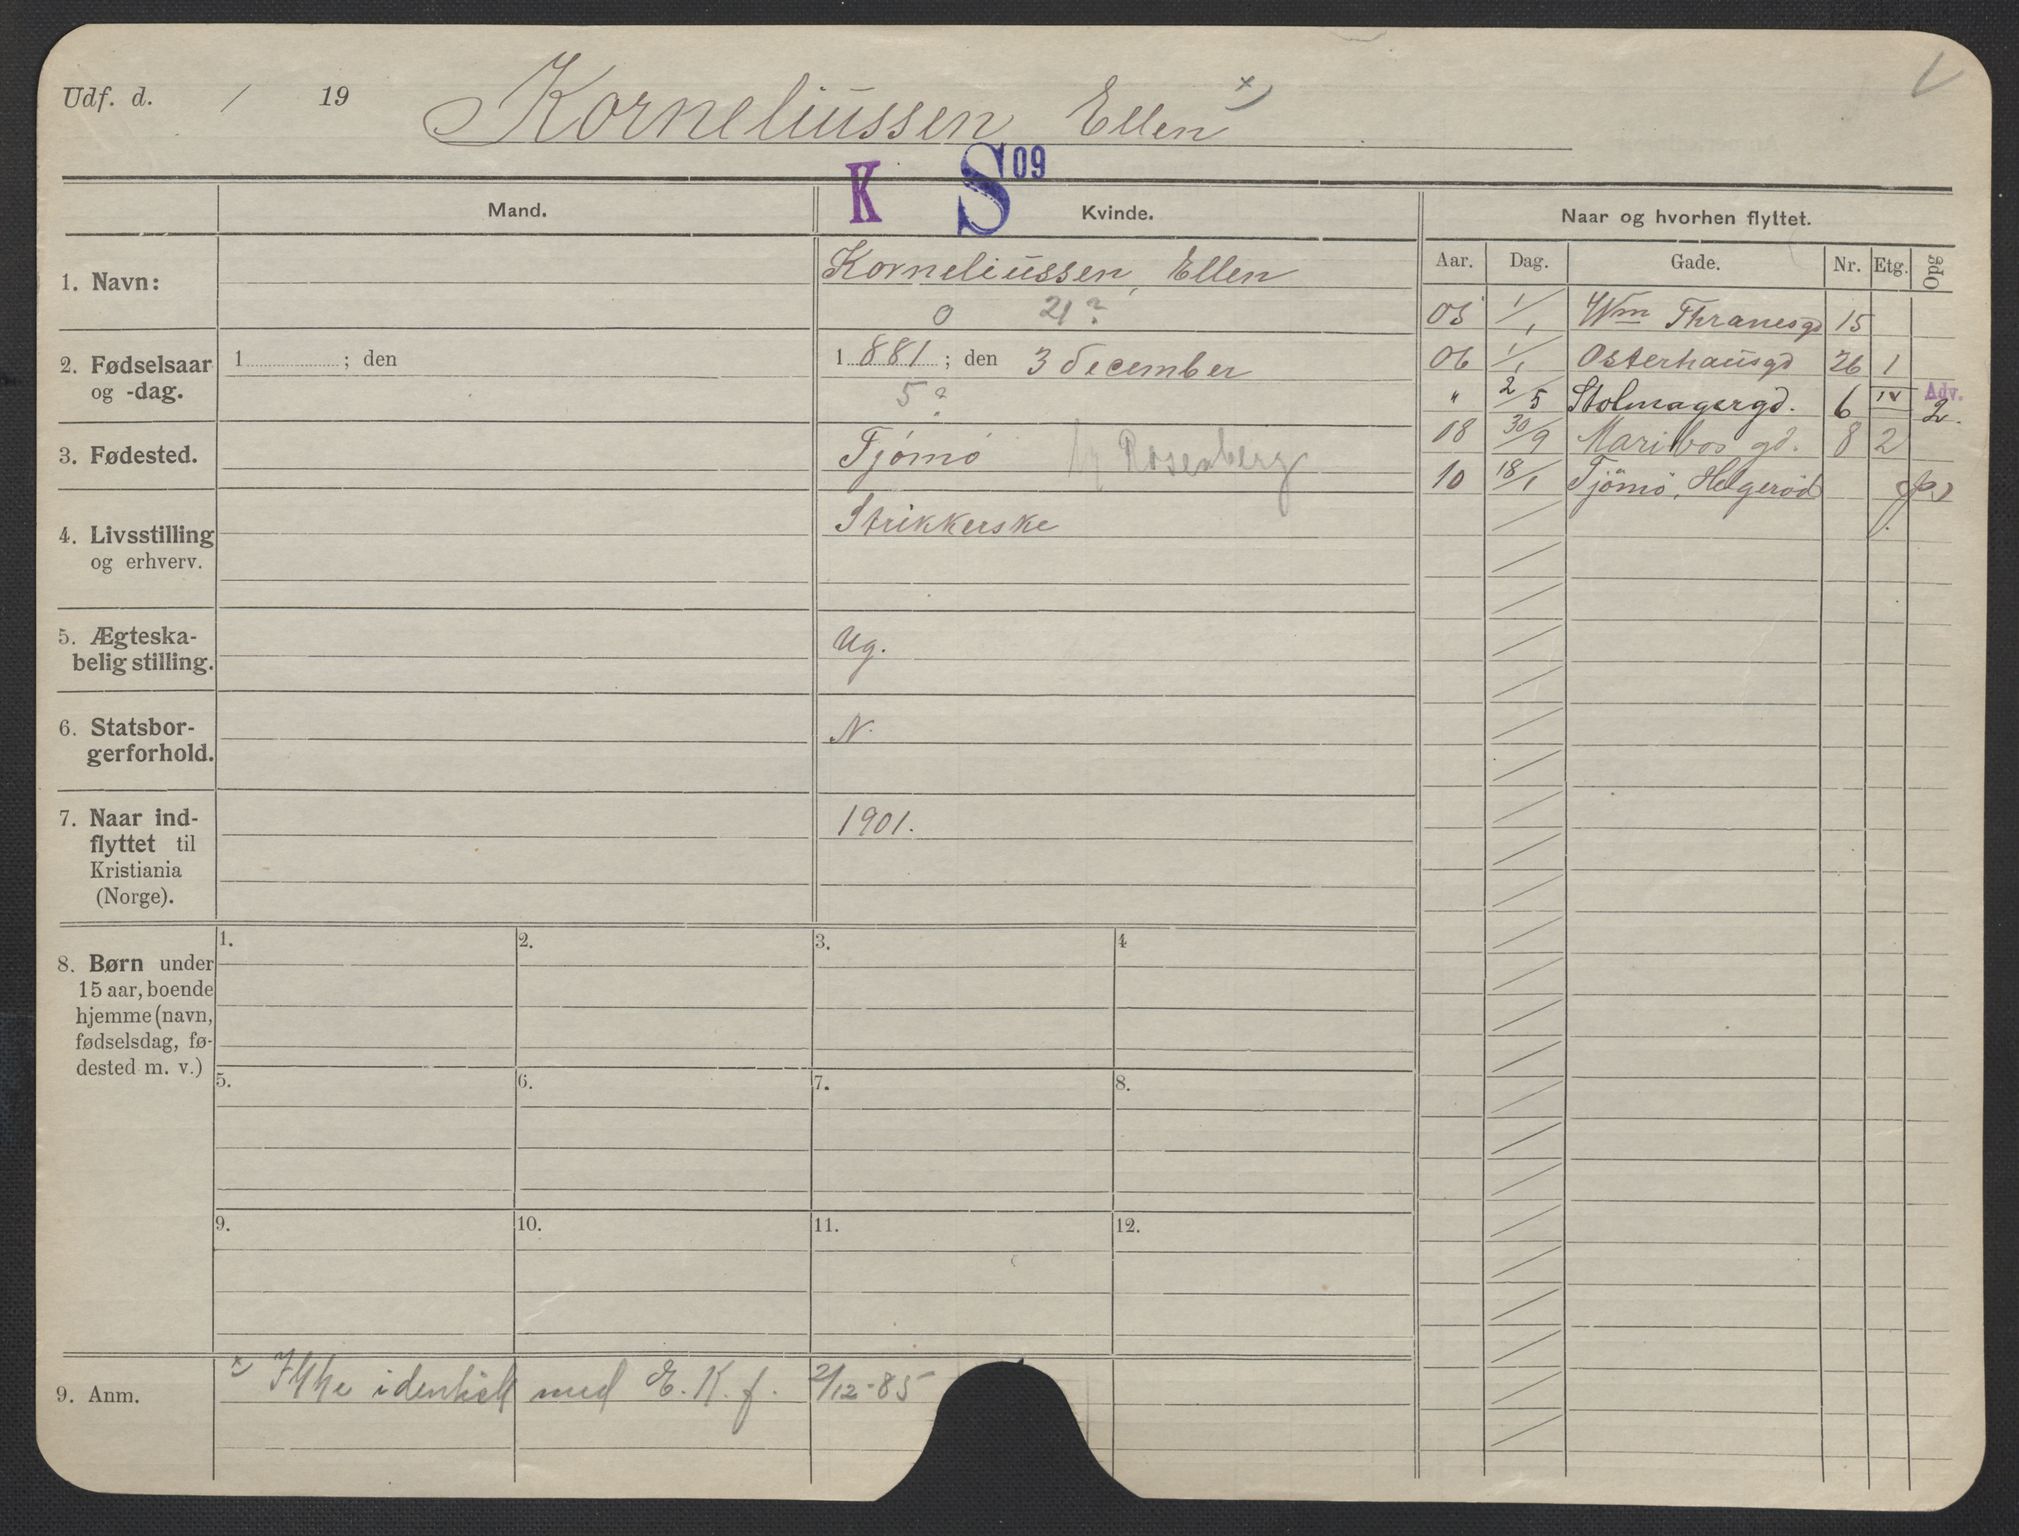 Udf. d. / 19 Korneliussen Ellen x)
K S 09
Mand. Kvinde. Naar og hvorhen flyttet.
Aar. Dag. Gade. Nr. Etg. Opg
1. Navn: Korneliussen, Ellen
0 21?
05 1/1 Wm Thranesgd 15
2. Fødselsaar og -dag. 1 ; den 1881 ; den 3 december
5?
06 1/1 Osterhausgd 26 1
" 2/5 Stolmagergd. 6 IV Adv. 2.
08 30/9 Maribos gd. 8 2
3. Fødested. Tjømø Rosenberg
10 18/1 Tjømø, Helgerød
4. Livsstilling og erhverv. Strikkerske
5. Ægteska-
belig stilling. Ug.
6. Statsbor-
gerforhold. N.
7. Naar ind-
flyttet til
Kristiania
(Norge). 1901.
8. Børn under
15 aar, boende
hjemme (navn,
fødselsdag, fø-
dested m. v.)
1. 2. 3. 4
5. 6. 7. 8.
9. 10. 11. 12.
9. Anm. x) Ikke identisk med E. K. f. 2/12-85